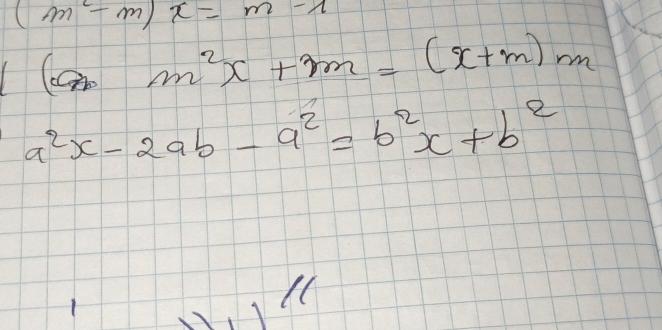 (m² - m) x = m - 1
m²x + 3m = (x+m) m
a²x - 2ab - a² = b²x + b²